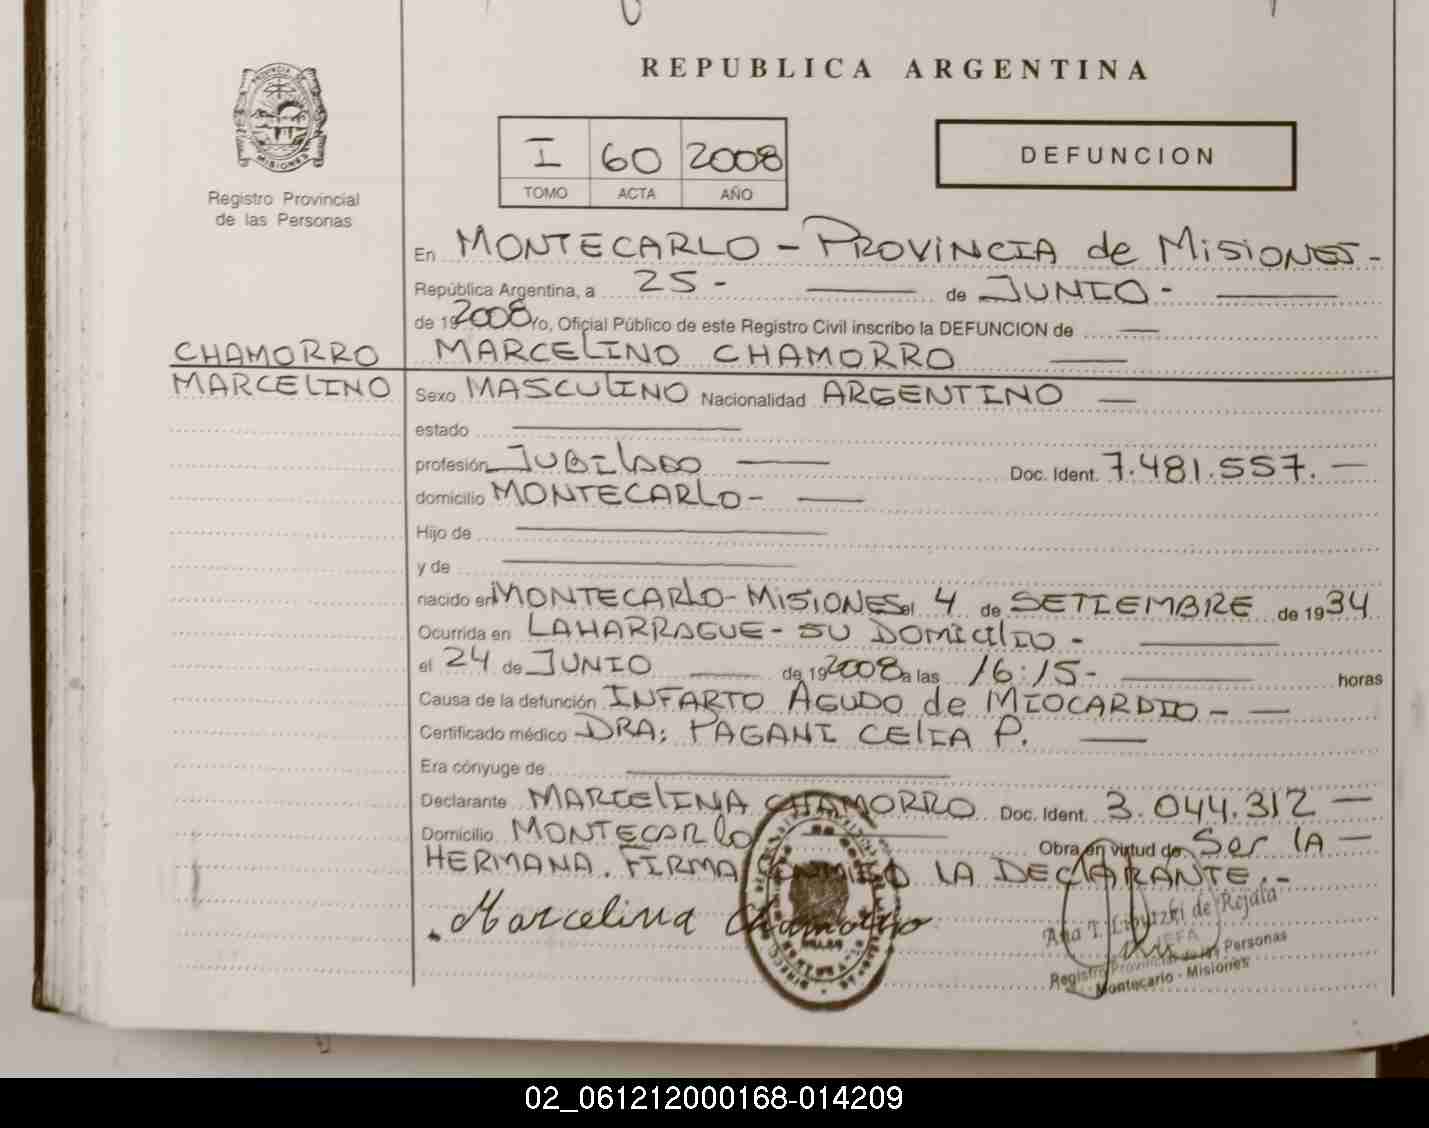 REPUBLICA ARGENTINA
PROVINCIA DE
MISIONES
Registro Provincial
de las Personas
I 60 2008
TOMO ACTA AÑO
DEFUNCION
En MONTECARLO - PROVINCIA de MISIONES -
República Argentina, a 25 - de JUNIO -
de 19 2008 Yo, Oficial Público de este Registro Civil inscribo la DEFUNCION de
CHAMORRO MARCELINO CHAMORRO
MARCELINO
Sexo MASCULINO Nacionalidad ARGENTINO
estado
profesión JUBILADO Doc. Ident. 7.481.557.
domicilio MONTECARLO -
Hijo de
y de
nacido en MONTECARLO - MISIONES el 4 de SETIEMBRE de 1934
Ocurrida en LAHARRAGUE - SU DOMICILIO -
el 24 de JUNIO de 19 2008 a las 16:15 - horas
Causa de la defunción INFARTO AGUDO de MIOCARDIO -
Certificado médico DRA: PAGANI CELIA P.
Era cónyuge de
Declarante MARCELINA CHAMORRO Doc. Ident. 3.044.312
Domicilio MONTECARLO Obra en virtud de Ser LA
HERMANA. FIRMA CONMIGO LA DECLARANTE. -
Marcelina Chamorro
Ana T. de Rejala
JEFA
Registro Provincial de las Personas
Montecarlo - Misiones
02_061212000168-014209